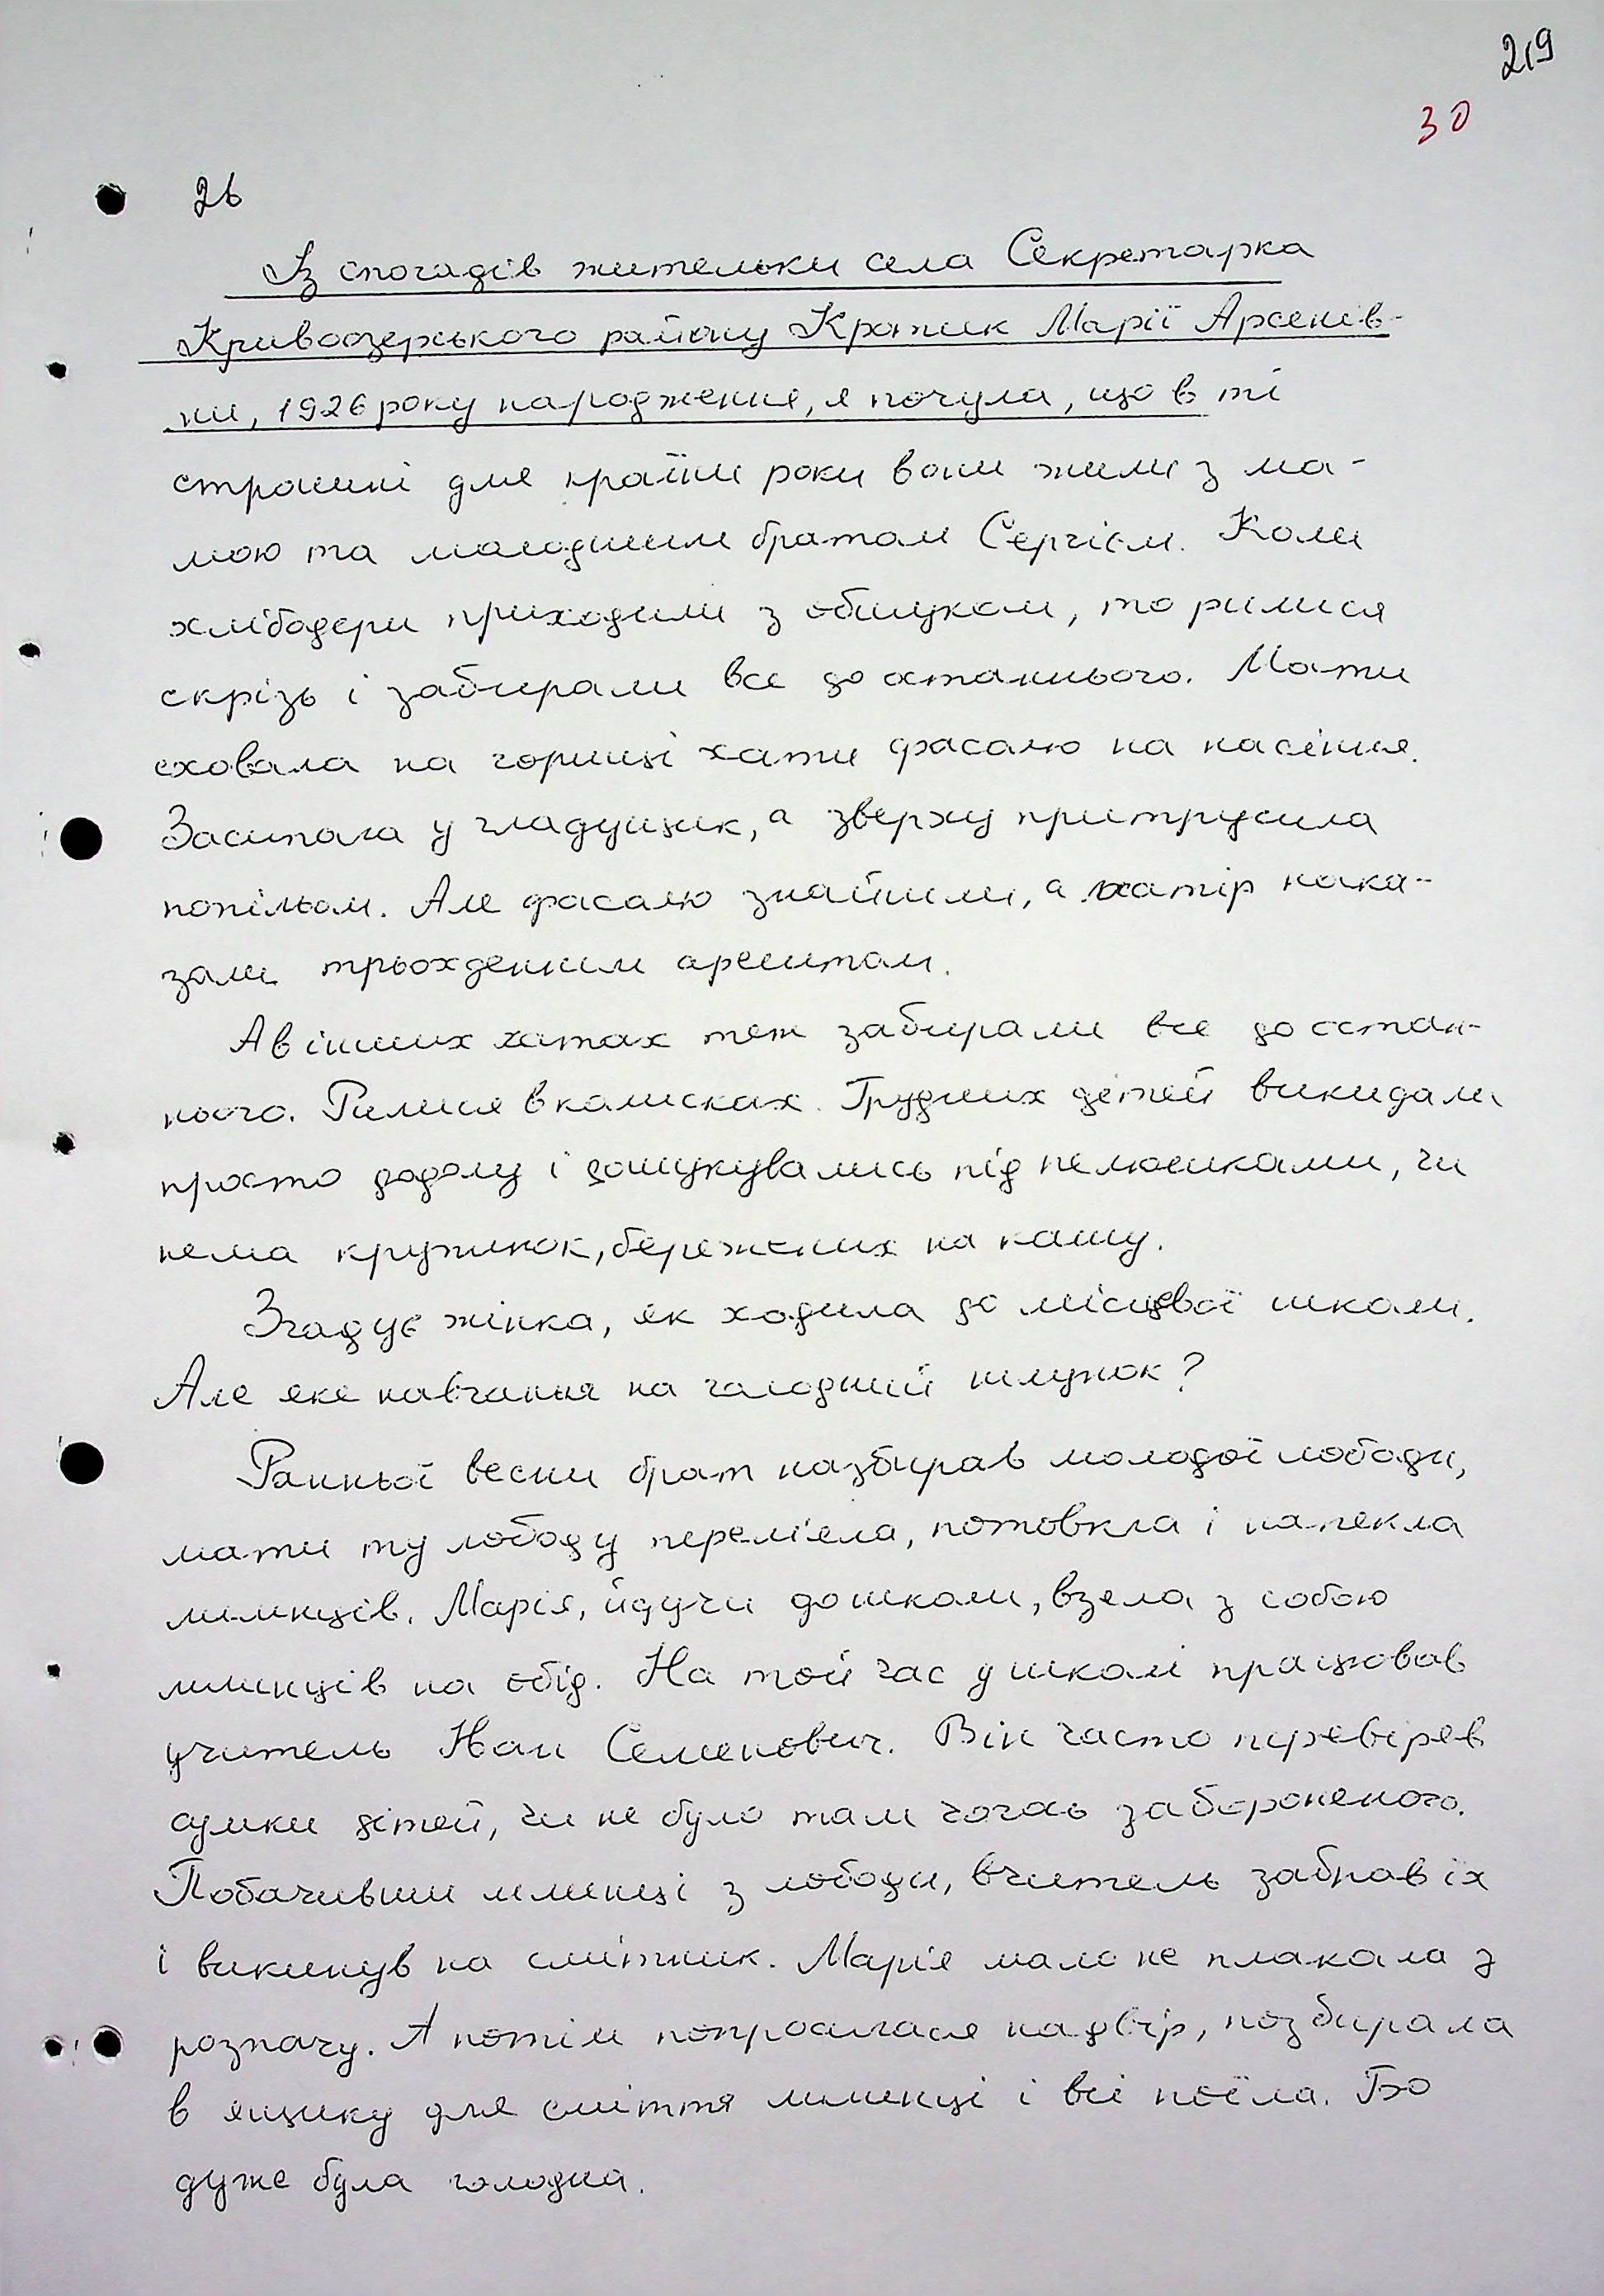 219
30
26
Із спогадів жительки села Секретарка
Кривоозерського району Кротик Марії Арсенів-
ни, 1926 року народження, я почула, що в ті
страшні для країни роки вони жили з ма-
мою та молодшим братом Сергієм. Коли
хлібодери приходили з обшуком, то рилися
скрізь і забирали все до останнього. Мати
сховала на горищі хати фасолю на насіння.
Засипала у гладущик, а зверху притрусила
попілом. Але фасолю знайшли, а матір пока-
зали трьохденним арештом.
А в інших хатах теж забирали все до остан-
нього. Рилися в колисках. Грудних дітей викидали
просто додолу і дошукувались під пелюшками, чи
нема крупинок, бережених на кашу.
Згадує жінка, як ходила до місцевої школи.
Але яке навчання на голодний шлунок?
Ранньої весни брат назбирав молодої лободи,
мати ту лободу перемʼяла, потовкла і напекла
млинців. Марія, йдучи до школи, взяла з собою
млинців на обід. На той час у школі працював
учитель Нан Семенович. Він часто перевіряв
сумки дітей, чи не було там чогось забороненого.
Побачивши млинці з лободи, вчитель забрав їх
і викинув на смітник. Марія мало не плакала з
розпачу. А потім попросилася надвір, позбирала
в ящику для сміття млинці і всі поїла. Бо
дуже була голодна.